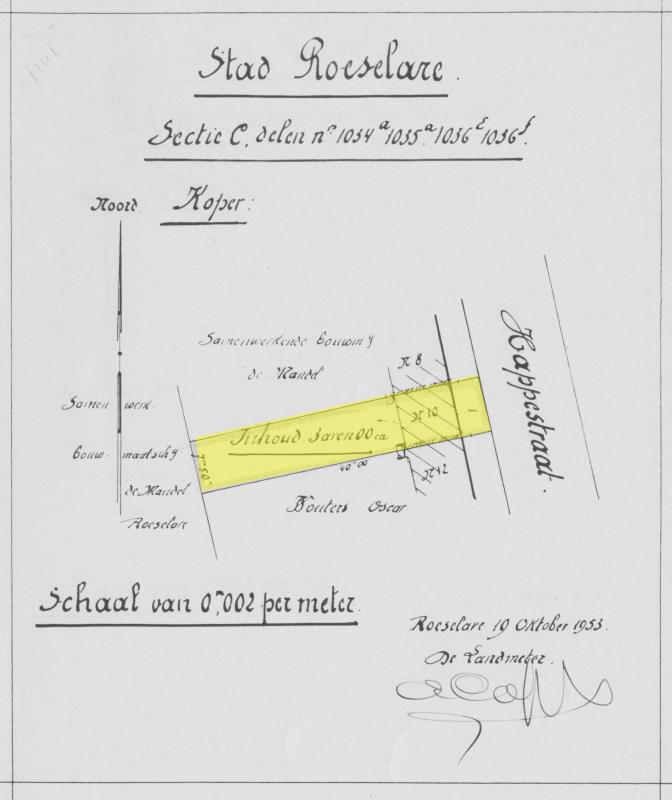 Stad Roeselare.
Sectie C, delen nº 1034ª 1035ª 1036ᵋ 1036ᶠ.
Noord. Koper:
Samenwerkende bouwmij
de Mandel
Samen werk.
bouw. maatschij
de Mandel
Roeselare
N 8
N 10
N 12
Inhoud 3 aren 00 ca
7ᵐ50
40ᵐ00
Wouters Oscar
Kappestraat.
Schaal van 0,ᵐ002 per meter.
Roeselare 19 Oktober 1953.
De Landmeter.